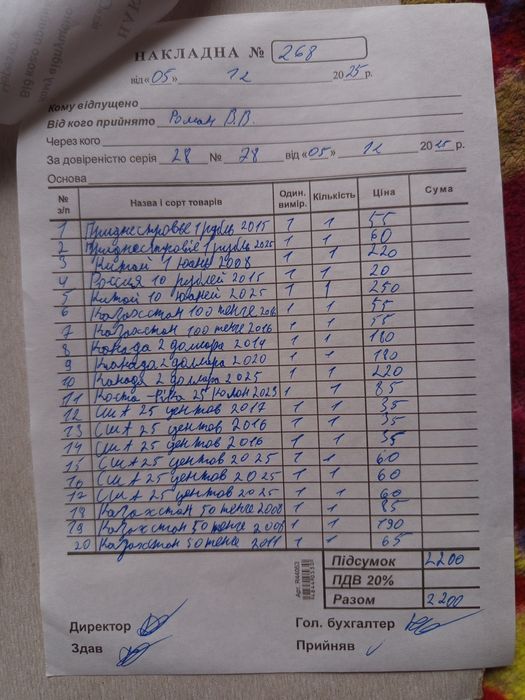 НАКЛАДНА № 268
від «05» 12 2025 р.
Кому відпущено
Від кого прийнято Роман В.В.
Через кого
За довіреністю серія 28 № 78 від «05» 12 2025 р.
Основа
№ з/п Назва і сорт товарів Один. вимір. Кількість Ціна Сума
1 Приднестровье 1 рубль 2015 1 1 55
2 Приднестровіе 1 рубль 2025 1 1 60
3 Китай 1 юань 2008 1 1 220
4 Россия 10 рублей 2015 1 1 20
5 Китай 10 юаней 2025 1 1 250
6 Казахстан 100 тенге 2016 1 1 55
7 Казахстан 100 тенге 2016 1 1 55
8 Канада 2 доллара 2019 1 1 180
9 Канада 2 доллара 2020 1 1 180
10 Канада 2 доллара 2025 1 1 220
11 Коста-Рика 25 2023 1 1 85
12 США 25 центов 2017 1 1 35
13 США 25 центов 2016 1 1 35
14 США 25 центов 2016 1 1 35
15 США 25 центов 2025 1 1 60
16 США 25 центов 2025 1 1 60
17 США 25 центов 2025 1 1 60
18 Казахстан 50 тенге 1 1 85
19 Казахстан 50 тенге 1 1 190
20 Казахстан 50 тенге 2011 1 1 65
Підсумок 2200
ПДВ 20%
Разом 2200
Директор Гол. бухгалтер
Здав Прийняв